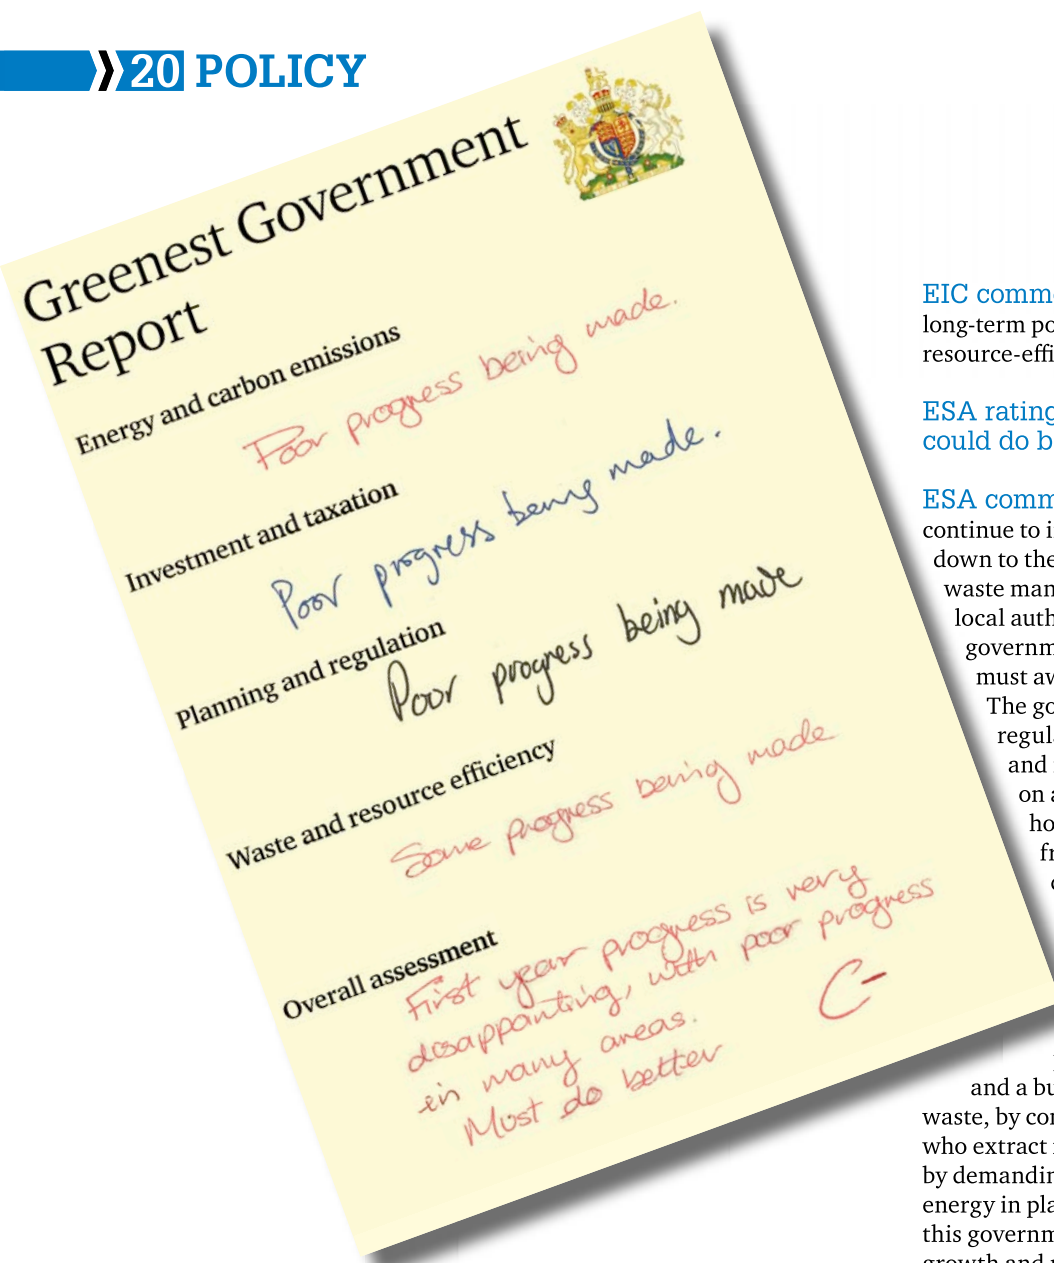 20 POLICY
Greenest Government
Report
Energy and carbon emissions
Poor progress being made.
Investment and taxation
Poor progress being made.
Planning and regulation
Poor progress being made
Waste and resource efficiency
Some progress being made
Overall assessment
First year progress is very
disappointing, with poor progress
in many areas.
Must do better
C-
EIC
long-term
ESA
could do
ESA
continue to
down to the
waste
local
must
The
and
on
and a
waste, by
who extract
by
energy in
this
growth and